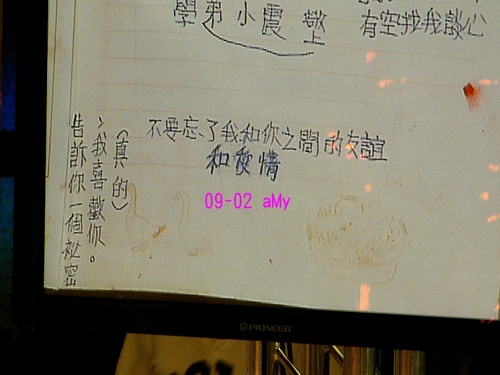 有空找我談心
學弟小震敬上
不要忘了我和你之間的友誼
和愛情
告訴你一個祕密
，我喜歡你。
（真的）
09-02 aMy
PIONEER